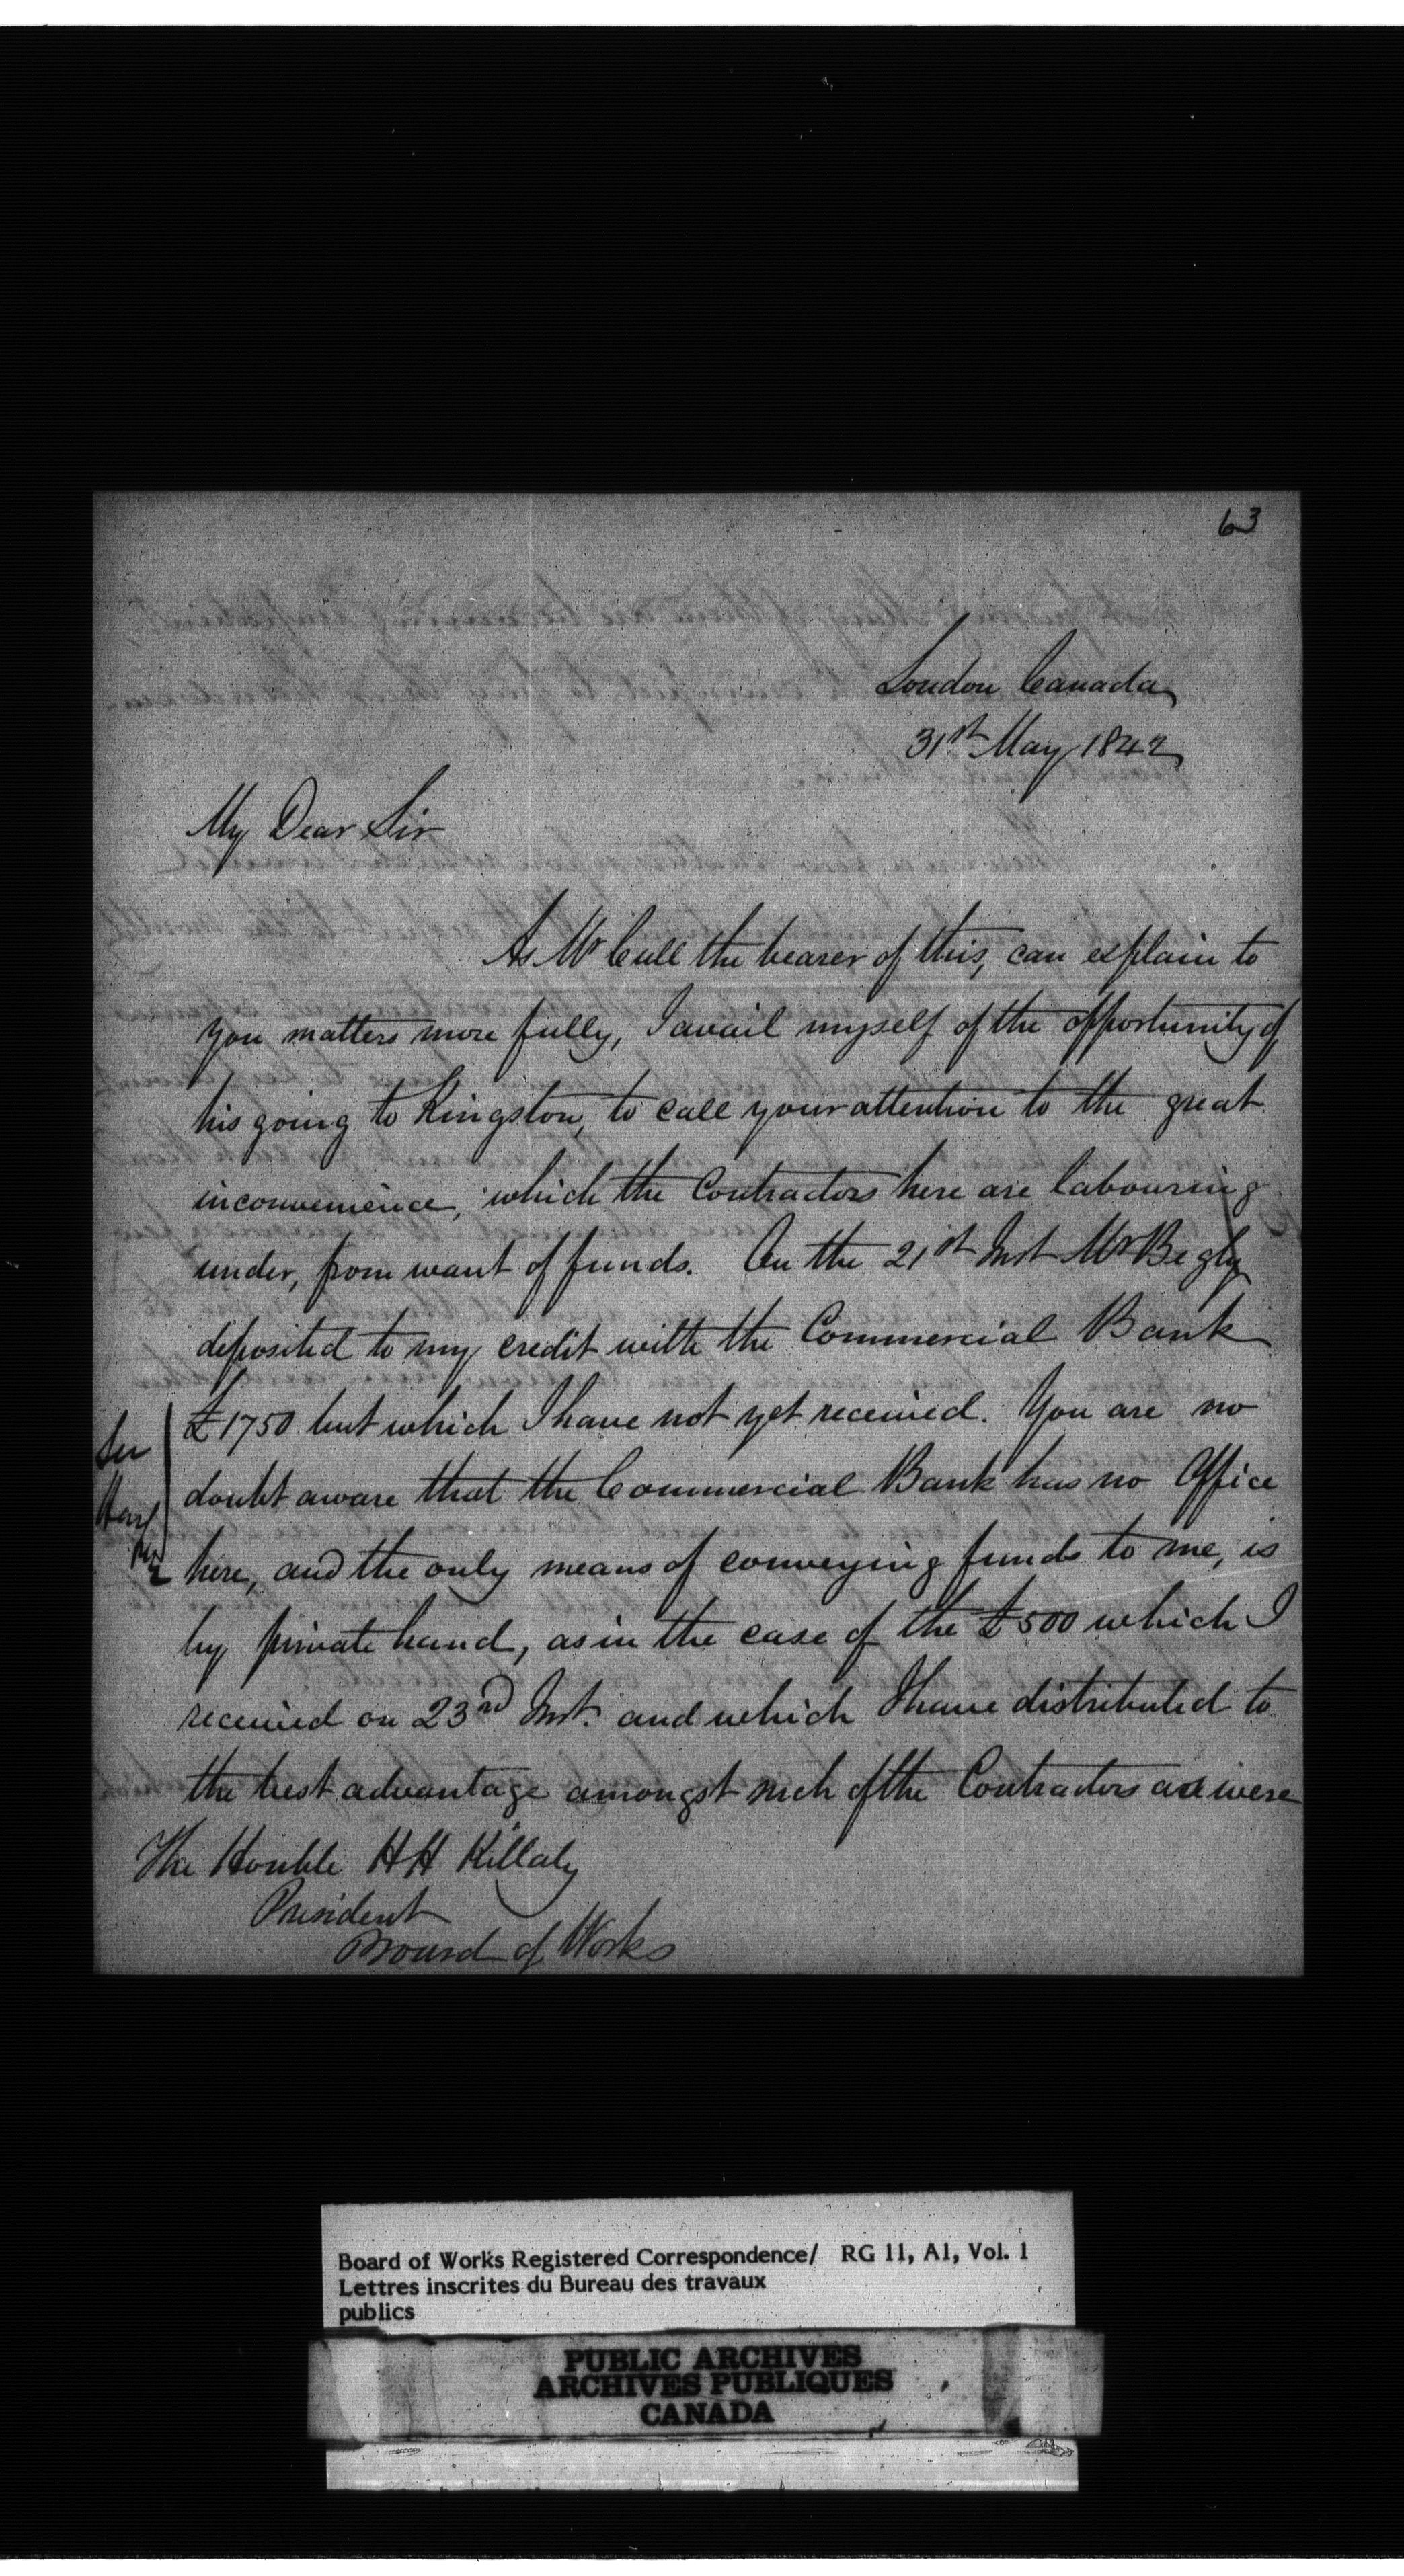 63
London Canada
31st May 1842
My Dear Sir
As Mr Cull the bearer of this, can explain to
you matters more fully, I avail myself of the opportunity of
his going to Kingston, to call your attention to the great
inconvenience, which the Contractors here are labouring
under, from want of funds. On the 21st Inst Mr Begly
deposited to my credit with the Commercial Bank
£1750 but which I have not yet received. You are no
doubt aware that the Commercial Bank has no Office
here, and the only means of conveying funds to me, is
by private hand, as in the case of the £500 which I
received on 23rd Inst. and which I have distributed to
the best advantage amongst such of the Contractors as were
The Honble H H Killaly
President
Board of Works
Board of Works Registered Correspondence/ RG 11, A1, Vol. 1
Lettres inscrites du Bureau des travaux
publics
PUBLIC ARCHIVES
ARCHIVES PUBLIQUES
CANADA